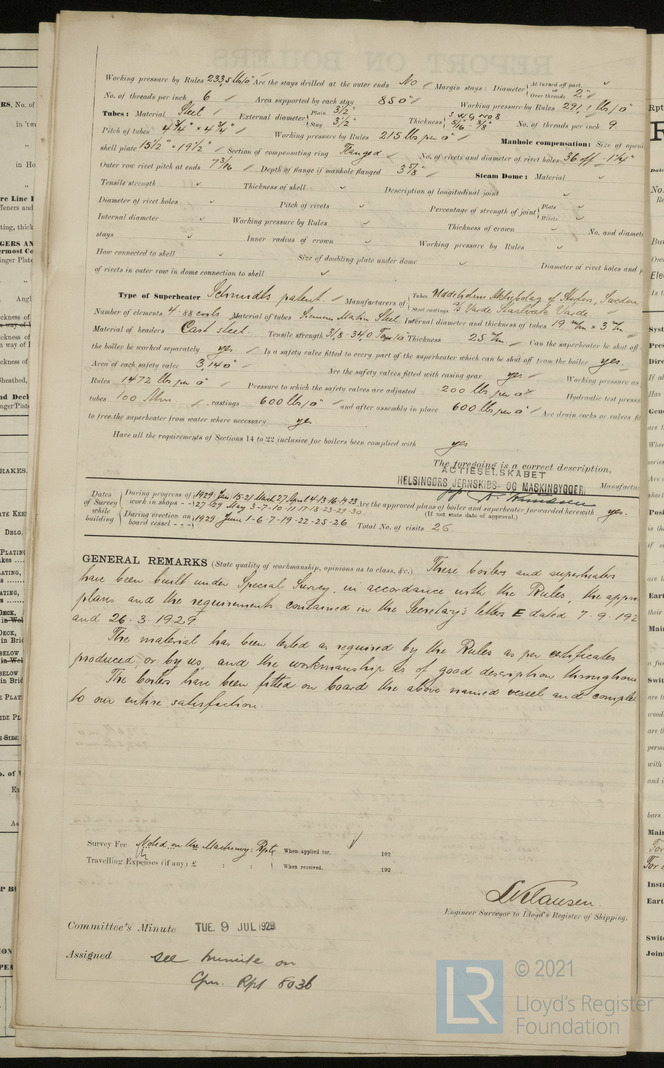 Working pressure by Rules 233.5 lbs/□" Are the stays drilled at the outer ends No Margin stays: Diameter At turned off part, Over threads 2"
No. of threads per inch 6 Area supported by each stay 85□" Working pressure by Rules 291.1 lbs/□"
Tubes: Material Steel External diameter Plain 3½" Stay 3½" Thickness 8 W.G. 5/16 - 3/8" No. of threads per inch 9
Pitch of tubes 4¾" × 4¾" Working pressure by Rules 215 lbs per □" Manhole compensation: Size of
shell plate 15½" × 19½" Section of compensating ring Flanged No. of rivets and diameter of rivet holes 36 off
Outer row rivet pitch at ends 7 3/16 Depth of flange if manhole flanged 3 5/8" Steam Dome: Material
Tensile strength Thickness of shell Description of longitudinal joint
Diameter of rivet holes Pitch of rivets Percentage of strength of joint Plate Rivets
Internal diameter Working pressure by Rules Thickness of crown No. and
stays Inner radius of crown Working pressure by Rules
How connected to shell Size of doubling plate under dome Diameter of rivet holes and
of rivets in outer row in dome connection to shell
Type of Superheater Schmidts patent. Manufacturers of Tubes Steel castings Varde Staalværk Varde
Number of elements 4 - 88 costs Material of tubes Siemens Martin Steel Internal diameter and thickness of tubes 19 m/m × 3 m/m
Material of headers Cast steel Tensile strength 31/8-34,0 Tons/□ Thickness 25 m/m Can the superheater be shut off
the boiler be worked separately yes Is a safety valve fitted to every part of the superheater which can be shut off from the boiler yes
Area of each safety valve 3,14□" Are the safety valves fitted with easing gear yes Working pressure as
Rules 1472 lbs per □" Pressure to which the safety valves are adjusted 200 lbs per □" Hydraulic test pressure
tubes 100 Atm. castings 600 lbs/□" and after assembly in place 600 lbs per □" Are drain cocks or valves
to free the superheater from water where necessary yes
Have all the requirements of Sections 14 to 22 inclusive for boilers been complied with yes
The foregoing is a correct description,
ACTIESELSKABET
HELSINGØRS JERNSKIBS- OG MASKINBYGGERI
Dates of Survey while building During progress of work in shops - - 1929 Jan. 15-21 March 27 April 4-13-16-19-23-27-29 May 3-7-10-11-17-18-23-29-30 Are the approved plans of boiler and superheater forwarded herewith yes.
(If not state date of approval.)
During erection on board vessel - - - 1929 June 1-6-7-19-22-25-26 Total No. of visits 26
GENERAL REMARKS (State quality of workmanship, opinions as to class, &c.) These boilers and superheaters
have been built under Special Survey, in accordance with the Rules, the
plans and the requirements contained in the Secretary's letter E dated 7-9-192
and 26-3-1929.
The material has been tested as required by the Rules as per certificates
produced, or by us, and the workmanship is of good description
The boilers have been fitted on board the above named vessel and
to our entire satisfaction.
Survey Fee Noted on the Machinery Rpts When applied for, 192
Travelling Expenses (if any) £ : : When received, 192
Engineer Surveyor to Lloyd's Register of Shipping.
Committee's Minute TUE. 9 JUL 1929
Assigned see minute on
Cpn. Rpt 8036
LR © 2021
Lloyd's Register
Foundation